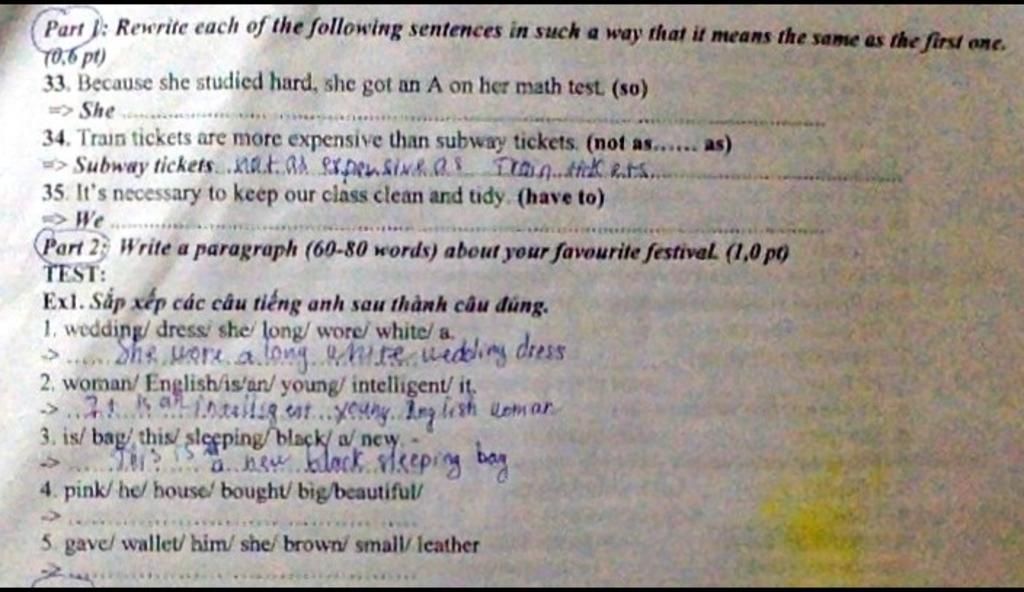 Part 1: Rewrite each of the following sentences in such a way that it means the same as the first one.
(0.6 pt)
33. Because she studied hard, she got an A on her math test. (so)
=> She ..........
34. Train tickets are more expensive than subway tickets. (not as...... as)
=> Subway tickets not as expensive as Train tickets
35. It's necessary to keep our class clean and tidy. (have to)
=> We ..........
Part 2: Write a paragraph (60-80 words) about your favourite festival. (1,0 pt)
TEST:
Ex1. Sắp xếp các câu tiếng anh sau thành câu đúng.
1. wedding/ dress/ she/ long/ wore/ white/ a.
-> ...... She wore a long white wedding dress
2. woman/ English/is/an/ young/ intelligent/ it.
-> .. It is an intelligent young English woman
3. is/ bag/ this/ sleeping/ black/ a/ new. -
-> ...... This is a new black sleeping bag
4. pink/ he/ house/ bought/ big/beautiful/
-> ..........
5. gave/ wallet/ him/ she/ brown/ small/ leather
-> ..........